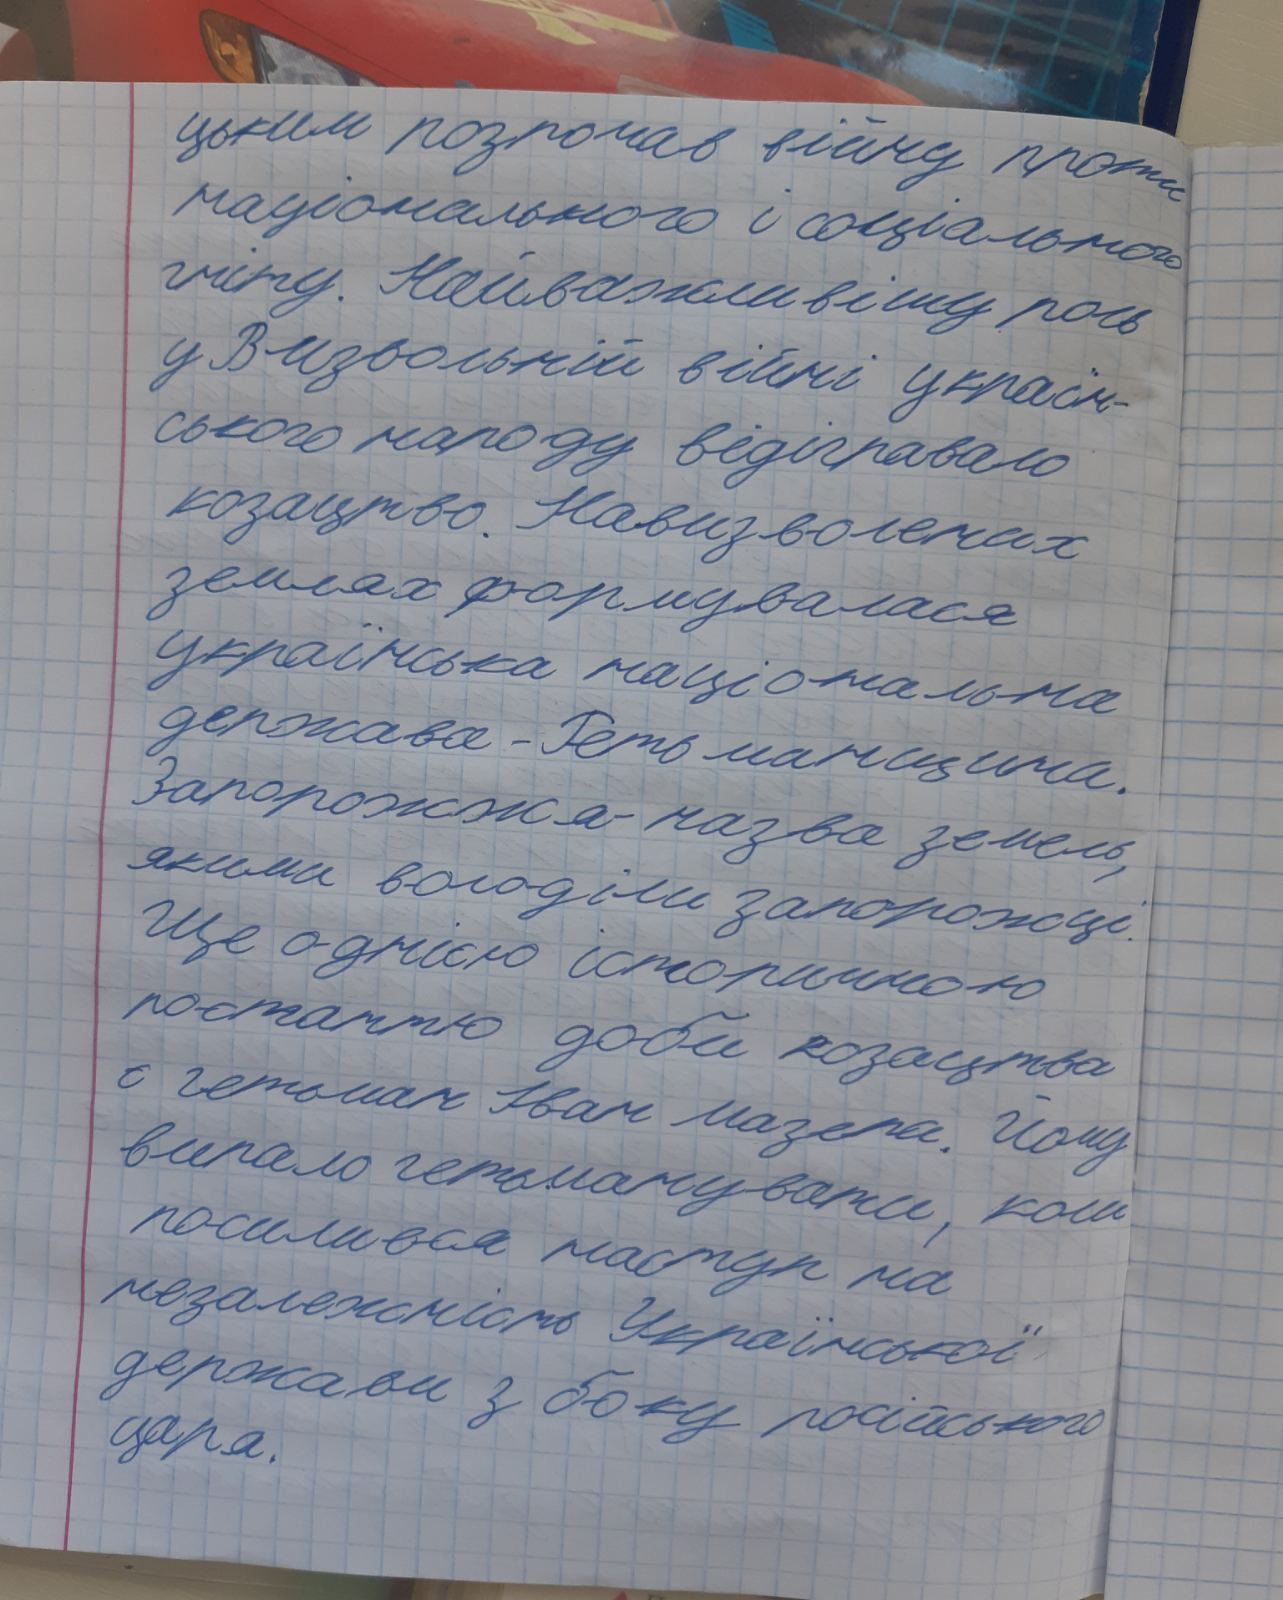 цьким розпочав війну проти
національного і соціального
гніту. Найважливішу роль
у Визвольній війні україн-
ського народу відігравало
козацтво. На визволених
землях формувалася
українська національна
держава - Гетьманщина.
Запорожжя - назва земель,
якими володіли запорожці.
Ще однією історичною
постаттю доби козацтва
є гетьман Іван Мазепа. Йому
випало гетьманувати, коли
посилився наступ на
незалежність Української
держави з боку російського
царя.